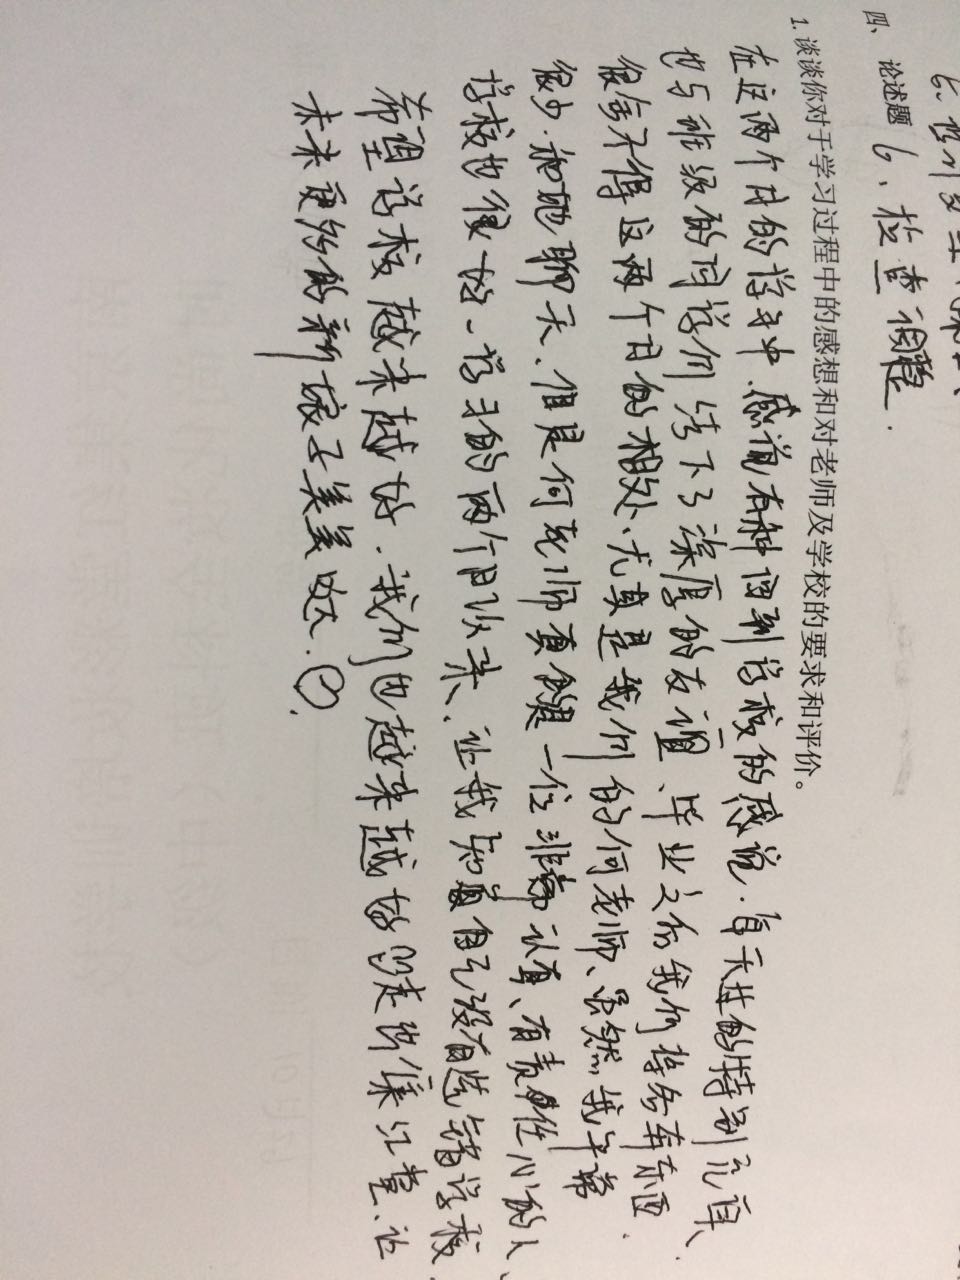 6、检查调整.
四、论述题
1.谈谈你对于学习过程中的感想和对老师及学校的要求和评价。
在这两个月的学习中.感觉有种回到学校的感觉.每天过的特别充实、
也与班级的同学们结下了深厚的友谊、毕业之后我们将各奔东西.
很舍不得这两个月的相处、尤其是我们的何老师、虽然我平常
很少.和她聊天.但是何老师真的是一位非常认真、有责任心的人、
学校也很好、学习的两个月以来、让我知道自己没有选错学校.
希望学校越来越好.我们也越来越好的走出集江壹.让
未来更多的新娘子美美哒.